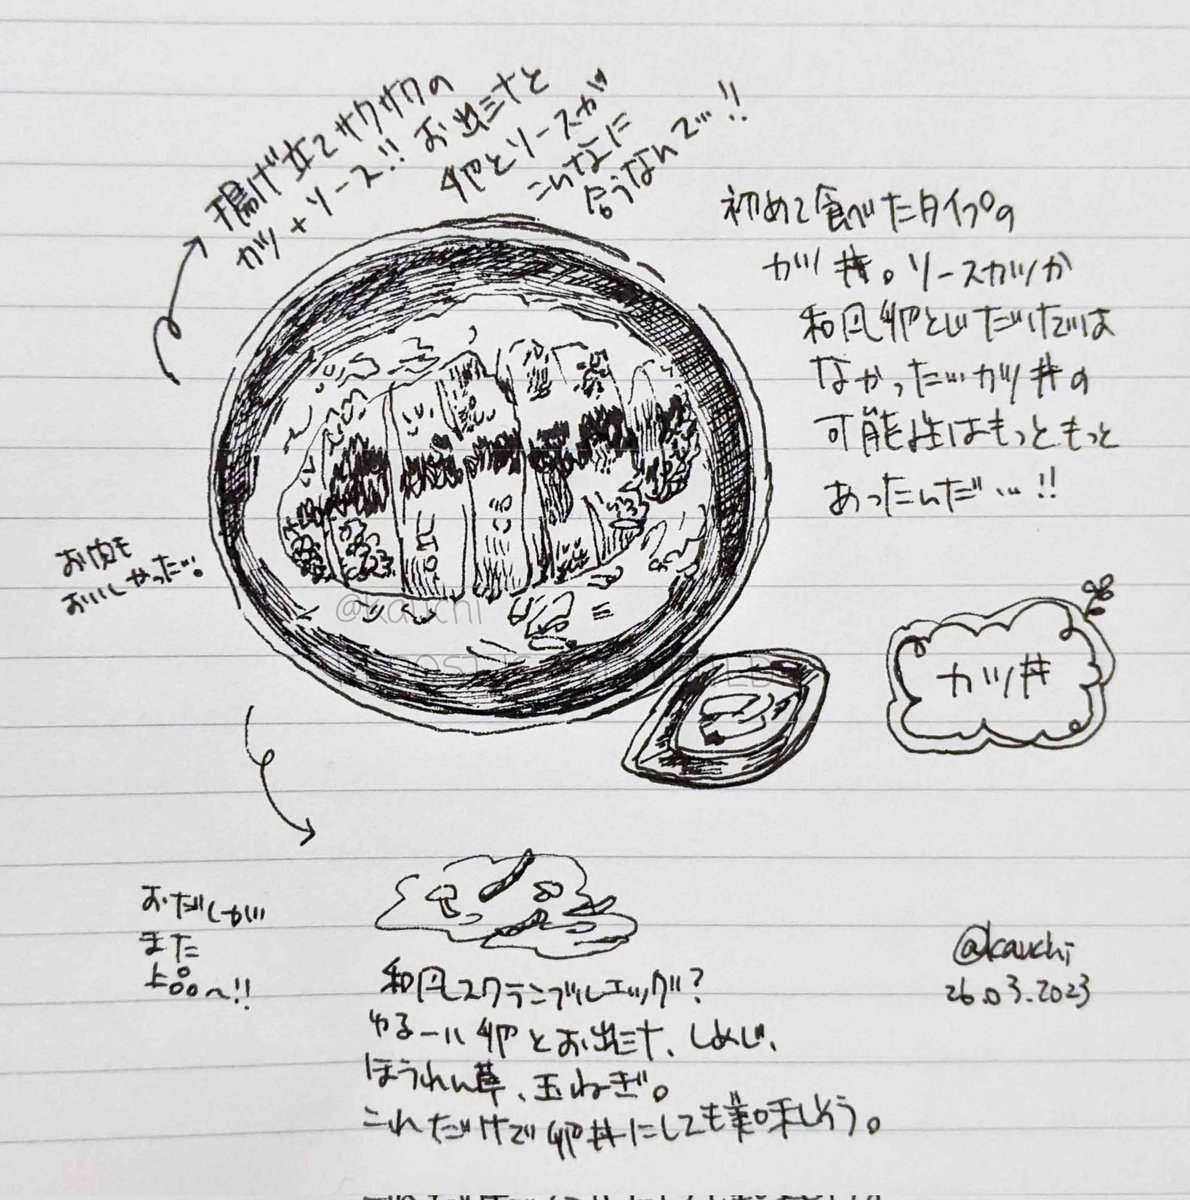 揚げ立てサクサクの
カツ+ソース!! お出汁と
卵とソースが
こんなに
合うなんて…!!
初めて食べたタイプの
カツ丼。ソースカツか
和風卵とじだけでは
なかった…カツ丼の
可能性はもっともっと
あったんだ…!!
お肉も
おいしかった…。
@kauchi
カツ丼
おだしが
また
上品〜!!
和風スクランブルエッグ?
ゆるーい卵とお出汁、しめじ、
ほうれん草、玉ねぎ。
これだけで卵丼にしても美味しそう。
@kauchi
26.03.2023